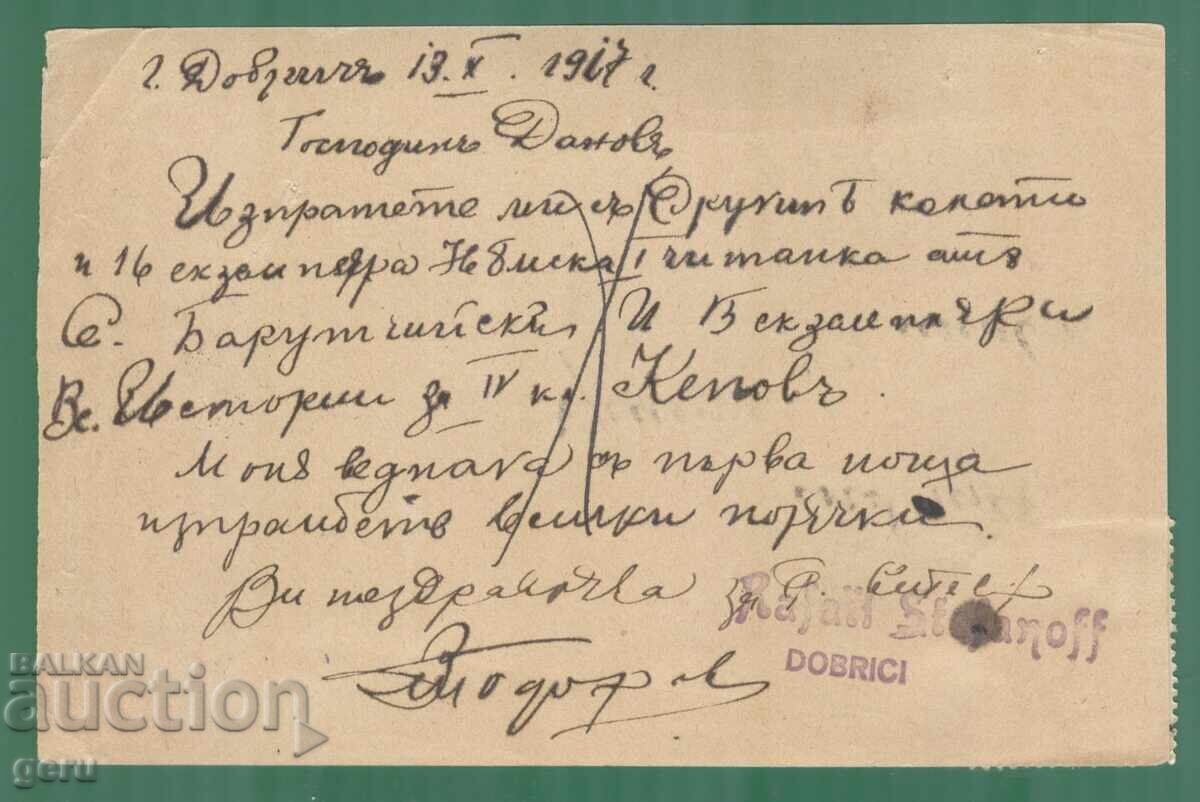 г. Добричъ 13.X. 1917 г.
Господинъ Дановъ
Изпратете ми съ колето
и 16 екземпляра Нѣмска I читанка отъ
С. Барутчийски И екземпляри
Вс. История за IV кл. Кеповъ.
Моля веднага съ първа поща
всички порѫчки.
Ви поздравлява за
Тодоров
Rafail Stefanoff
DOBRICI
BALKAN
auction
geru